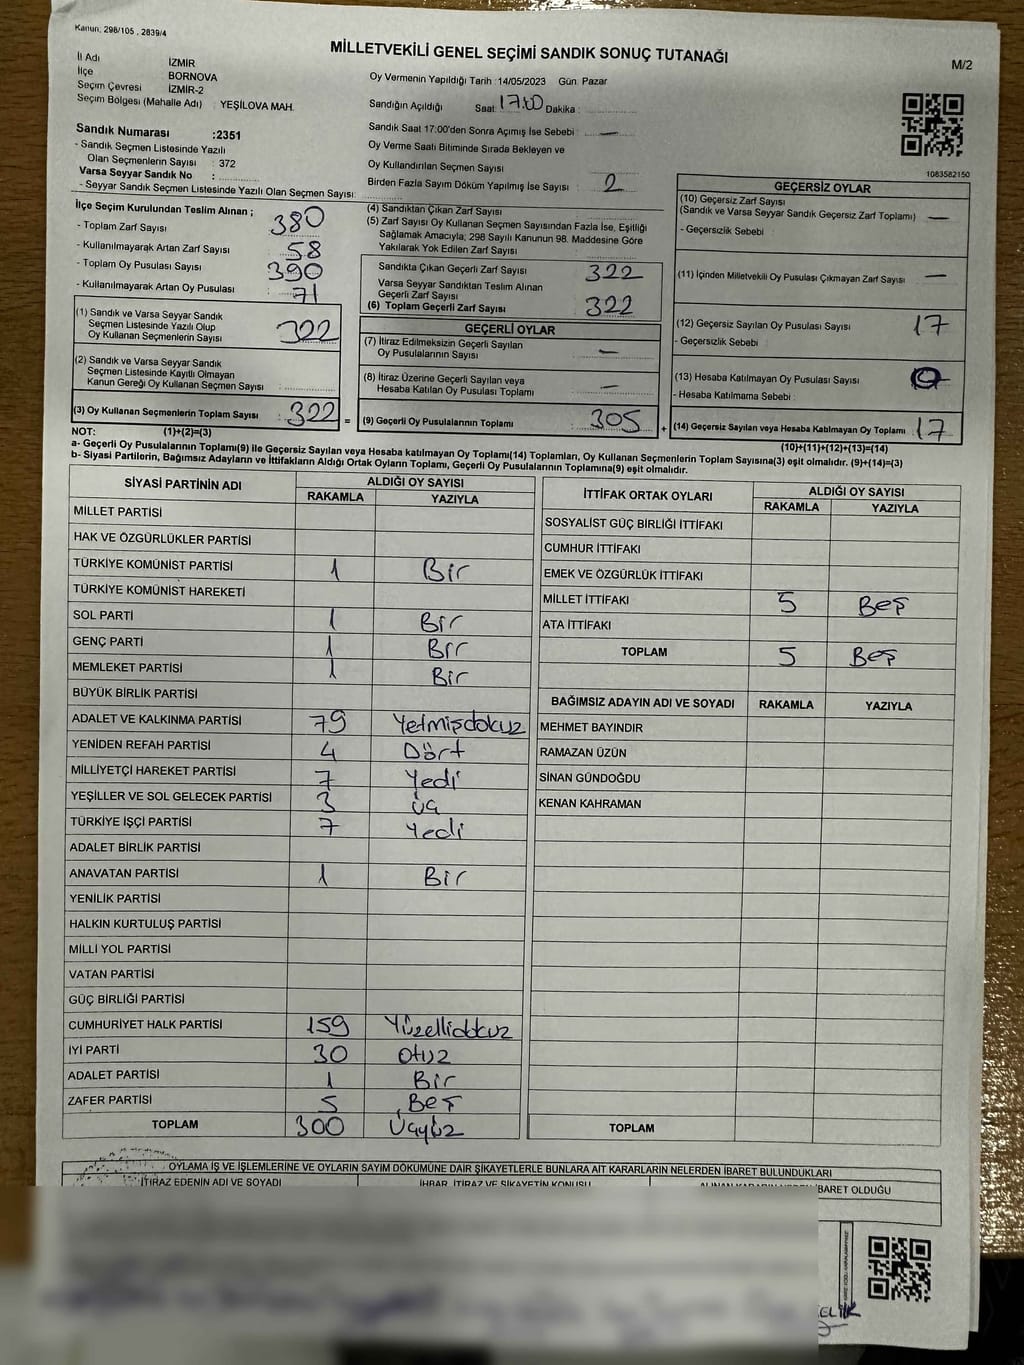 Kanun, 298/105 , 2839/4
MİLLETVEKİLİ GENEL SEÇİMİ SANDIK SONUÇ TUTANAĞI
M/2
İl Adı İZMİR
İlçe BORNOVA
Seçim Çevresi İZMİR-2
Seçim Bölgesi (Mahalle Adı) : YEŞİLOVA MAH.
Oy Vermenin Yapıldığı Tarih : 14/05/2023 Gün: Pazar
Sandığın Açıldığı Saat: 17:00 Dakika :
Sandık Saat 17:00'den Sonra Açımış İse Sebebi : —
Oy Verme Saati Bitiminde Sırada Bekleyen ve
Oy Kullandırılan Seçmen Sayısı
Birden Fazla Sayım Döküm Yapılmış İse Sayısı : 2
1083582150
Sandık Numarası :2351
- Sandık Seçmen Listesinde Yazılı
Olan Seçmenlerin Sayısı : 372
Varsa Seyyar Sandık No :
- Seyyar Sandık Seçmen Listesinde Yazılı Olan Seçmen Sayısı:
İlçe Seçim Kurulundan Teslim Alınan ;
- Toplam Zarf Sayısı : 380
- Kullanılmayarak Artan Zarf Sayısı : 58
- Toplam Oy Pusulası Sayısı : 390
- Kullanılmayarak Artan Oy Pusulası : 71
(1) Sandık ve Varsa Seyyar Sandık
Seçmen Listesinde Yazılı Olup
Oy Kullanan Seçmenlerin Sayısı : 322
(2) Sandık ve Varsa Seyyar Sandık
Seçmen Listesinde Kayıtlı Olmayan
Kanun Gereği Oy Kullanan Seçmen Sayısı :
(3) Oy Kullanan Seçmenlerin Toplam Sayısı : 322 =
(4) Sandıktan Çıkan Zarf Sayısı
(5) Zarf Sayısı Oy Kullanan Seçmen Sayısından Fazla İse, Eşitliği
Sağlamak Amacıyla; 298 Sayılı Kanunun 98. Maddesine Göre
Yakılarak Yok Edilen Zarf Sayısı
Sandıkta Çıkan Geçerli Zarf Sayısı 322
Varsa Seyyar Sandıktan Teslim Alınan
Geçerli Zarf Sayısı
(6) Toplam Geçerli Zarf Sayısı : 322
GEÇERLİ OYLAR
(7) İtiraz Edilmeksizin Geçerli Sayılan
Oy Pusulalarının Sayısı : —
(8) İtiraz Üzerine Geçerli Sayılan veya
Hesaba Katılan Oy Pusulası Toplamı : —
(9) Geçerli Oy Pusulalarının Toplamı 305 +
GEÇERSİZ OYLAR
(10) Geçersiz Zarf Sayısı
(Sandık ve Varsa Seyyar Sandık Geçersiz Zarf Toplamı) : —
- Geçersizlik Sebebi :
(11) İçinden Milletvekili Oy Pusulası Çıkmayan Zarf Sayısı : —
(12) Geçersiz Sayılan Oy Pusulası Sayısı : 17
- Geçersizlik Sebebi :
(13) Hesaba Katılmayan Oy Pusulası Sayısı : 0
- Hesaba Katılmama Sebebi :
(14) Geçersiz Sayılan veya Hesaba Katılmayan Oy Toplamı : 17
NOT: (1)+(2)=(3) (10)+(11)+(12)+(13)=(14)
a- Geçerli Oy Pusulalarının Toplamı(9) ile Geçersiz Sayılan veya Hesaba katılmayan Oy Toplamı(14) Toplamları, Oy Kullanan Seçmenlerin Toplam Sayısına(3) eşit olmalıdır. (9)+(14)=(3)
b- Siyasi Partilerin, Bağımsız Adayların ve İttifakların Aldığı Ortak Oyların Toplamı, Geçerli Oy Pusulalarının Toplamına(9) eşit olmalıdır.
SİYASİ PARTİNİN ADI ALDIĞI OY SAYISI
RAKAMLA YAZIYLA
MİLLET PARTİSİ
HAK VE ÖZGÜRLÜKLER PARTİSİ
TÜRKİYE KOMÜNİST PARTİSİ 1 Bir
TÜRKİYE KOMÜNİST HAREKETİ
SOL PARTİ 1 Bir
GENÇ PARTİ 1 Bir
MEMLEKET PARTİSİ 1 Bir
BÜYÜK BİRLİK PARTİSİ
ADALET VE KALKINMA PARTİSİ 79 Yetmişdokuz
YENİDEN REFAH PARTİSİ 4 Dört
MİLLİYETÇİ HAREKET PARTİSİ 7 Yedi
YEŞİLLER VE SOL GELECEK PARTİSİ 3 Üç
TÜRKİYE İŞÇİ PARTİSİ 7 Yedi
ADALET BİRLİK PARTİSİ
ANAVATAN PARTİSİ 1 Bir
YENİLİK PARTİSİ
HALKIN KURTULUŞ PARTİSİ
MİLLİ YOL PARTİSİ
VATAN PARTİSİ
GÜÇ BİRLİĞİ PARTİSİ
CUMHURİYET HALK PARTİSİ 159 Yüzellidokuz
İYİ PARTİ 30 Otuz
ADALET PARTİSİ 1 Bir
ZAFER PARTİSİ 5 Beş
TOPLAM 300 Üçyüz
İTTİFAK ORTAK OYLARI ALDIĞI OY SAYISI
RAKAMLA YAZIYLA
SOSYALİST GÜÇ BİRLİĞİ İTTİFAKI
CUMHUR İTTİFAKI
EMEK VE ÖZGÜRLÜK İTTİFAKI
MİLLET İTTİFAKI 5 Beş
ATA İTTİFAKI
TOPLAM 5 Beş
BAĞIMSIZ ADAYIN ADI VE SOYADI RAKAMLA YAZIYLA
MEHMET BAYINDIR
RAMAZAN ÜZÜN
SİNAN GÜNDOĞDU
KENAN KAHRAMAN
TOPLAM
OYLAMA İŞ VE İŞLEMLERİNE VE OYLARIN SAYIM DÖKÜMÜNE DAİR ŞİKAYETLERLE BUNLARA AİT KARARLARIN NELERDEN İBARET BULUNDUKLARI
İTİRAZ EDENİN ADI VE SOYADI İHBAR, İTİRAZ VE ŞİKAYETİN KONUSU ALINAN KARARIN NEDEN İBARET OLDUĞU